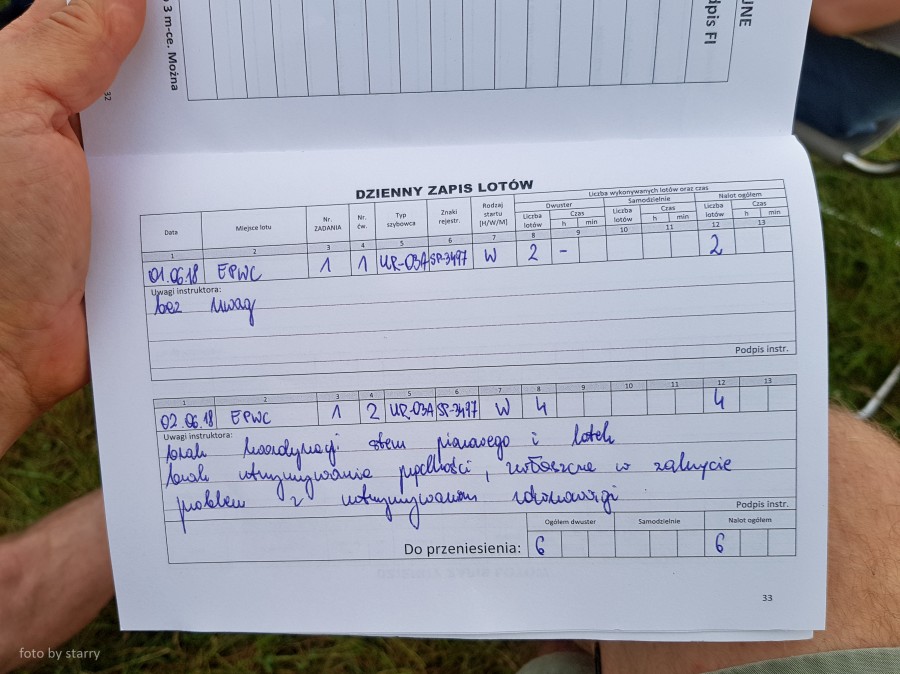 3 m-ce. Można
32
dpis FI
JNE
DZIENNY ZAPIS LOTÓW
Liczba wykonywanych lotów oraz czas
Dwuster Samodzielnie Nalot ogółem
Data Miejsce lotu Nr. ZADANIA Nr. ćw. Typ szybowca Znaki rejestr. Rodzaj startu [H/W/M] Liczba lotów Czas h min Liczba lotów Czas h min Liczba lotów Czas h min
1 2 3 4 5 6 7 8 9 10 11 12 13
01.06.18 EPWC 1 1 UR-03A SP-3497 W 2 - 2
Uwagi instruktora:
bez uwag
Podpis instr.
1 2 3 4 5 6 7 8 9 10 11 12 13
02.06.18 EPWC 1 2 UR-03A SP-3497 W 4 4
Uwagi instruktora:
brak koordynacji steru pionowego i lotek
brak utrzymywania prędkości, zwłaszcza w zakręcie
problem z utrzymywaniem równowagi
Podpis instr.
Ogółem dwuster Samodzielnie Nalot ogółem
Do przeniesienia: 6 6
33
foto by starry